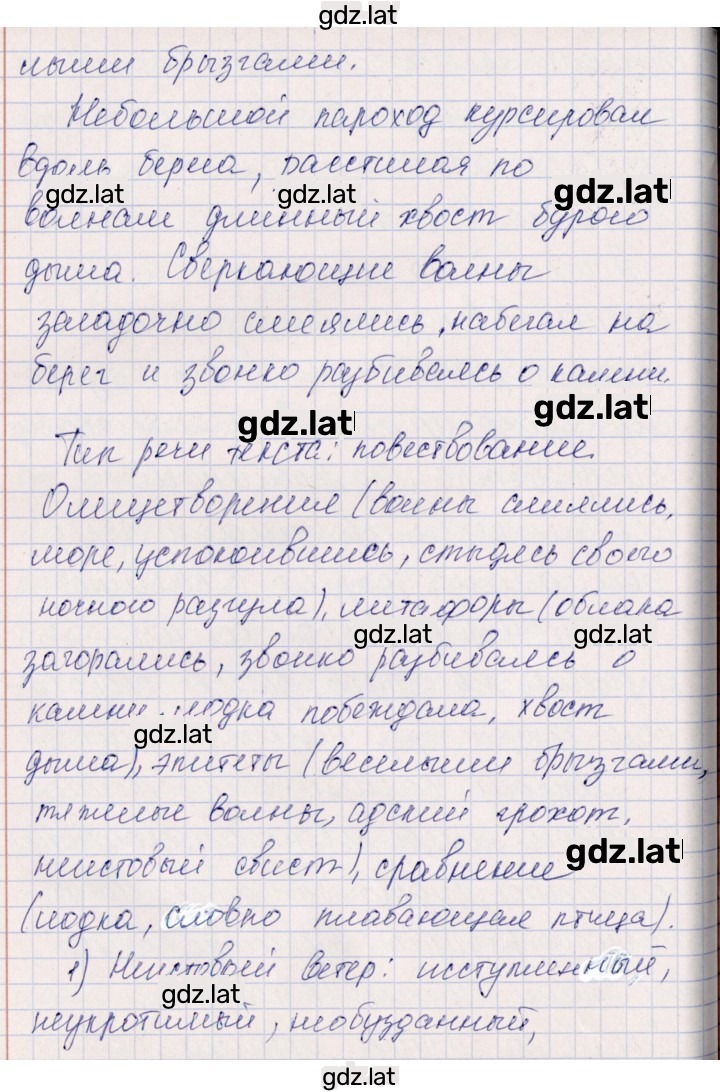 gdz.lat
лыми брызгами.
Небольшой пароход курсировал
вдоль берега, расстилая по
gdz.lat gdz.lat gdz.lat
волнам длинный хвост бурого
дыма. Сверкающие волны
загадочно смеялись, набегал на
берег и звонко разбиваясь о камни.
gdz.lat gdz.lat
Тип речи текста: повествование.
Олицетворения (волны смеялись,
море, успокоившись, стыдясь своего
ночного разгула), метафоры (облака
gdz.lat gdz.lat
загорались, звонко разбиваясь о
камни, лодка побеждала, хвост
gdz.lat
дыма), эпитеты (веселыми брызгами,
тяжелые волны, адский грохот,
неистовый свист), сравнение
gdz.lat
(лодка, словно плавающая птица).
1) Неистовый ветер: исступленный,
gdz.lat gdz.lat
неукротимый, необузданный,
gdz.lat